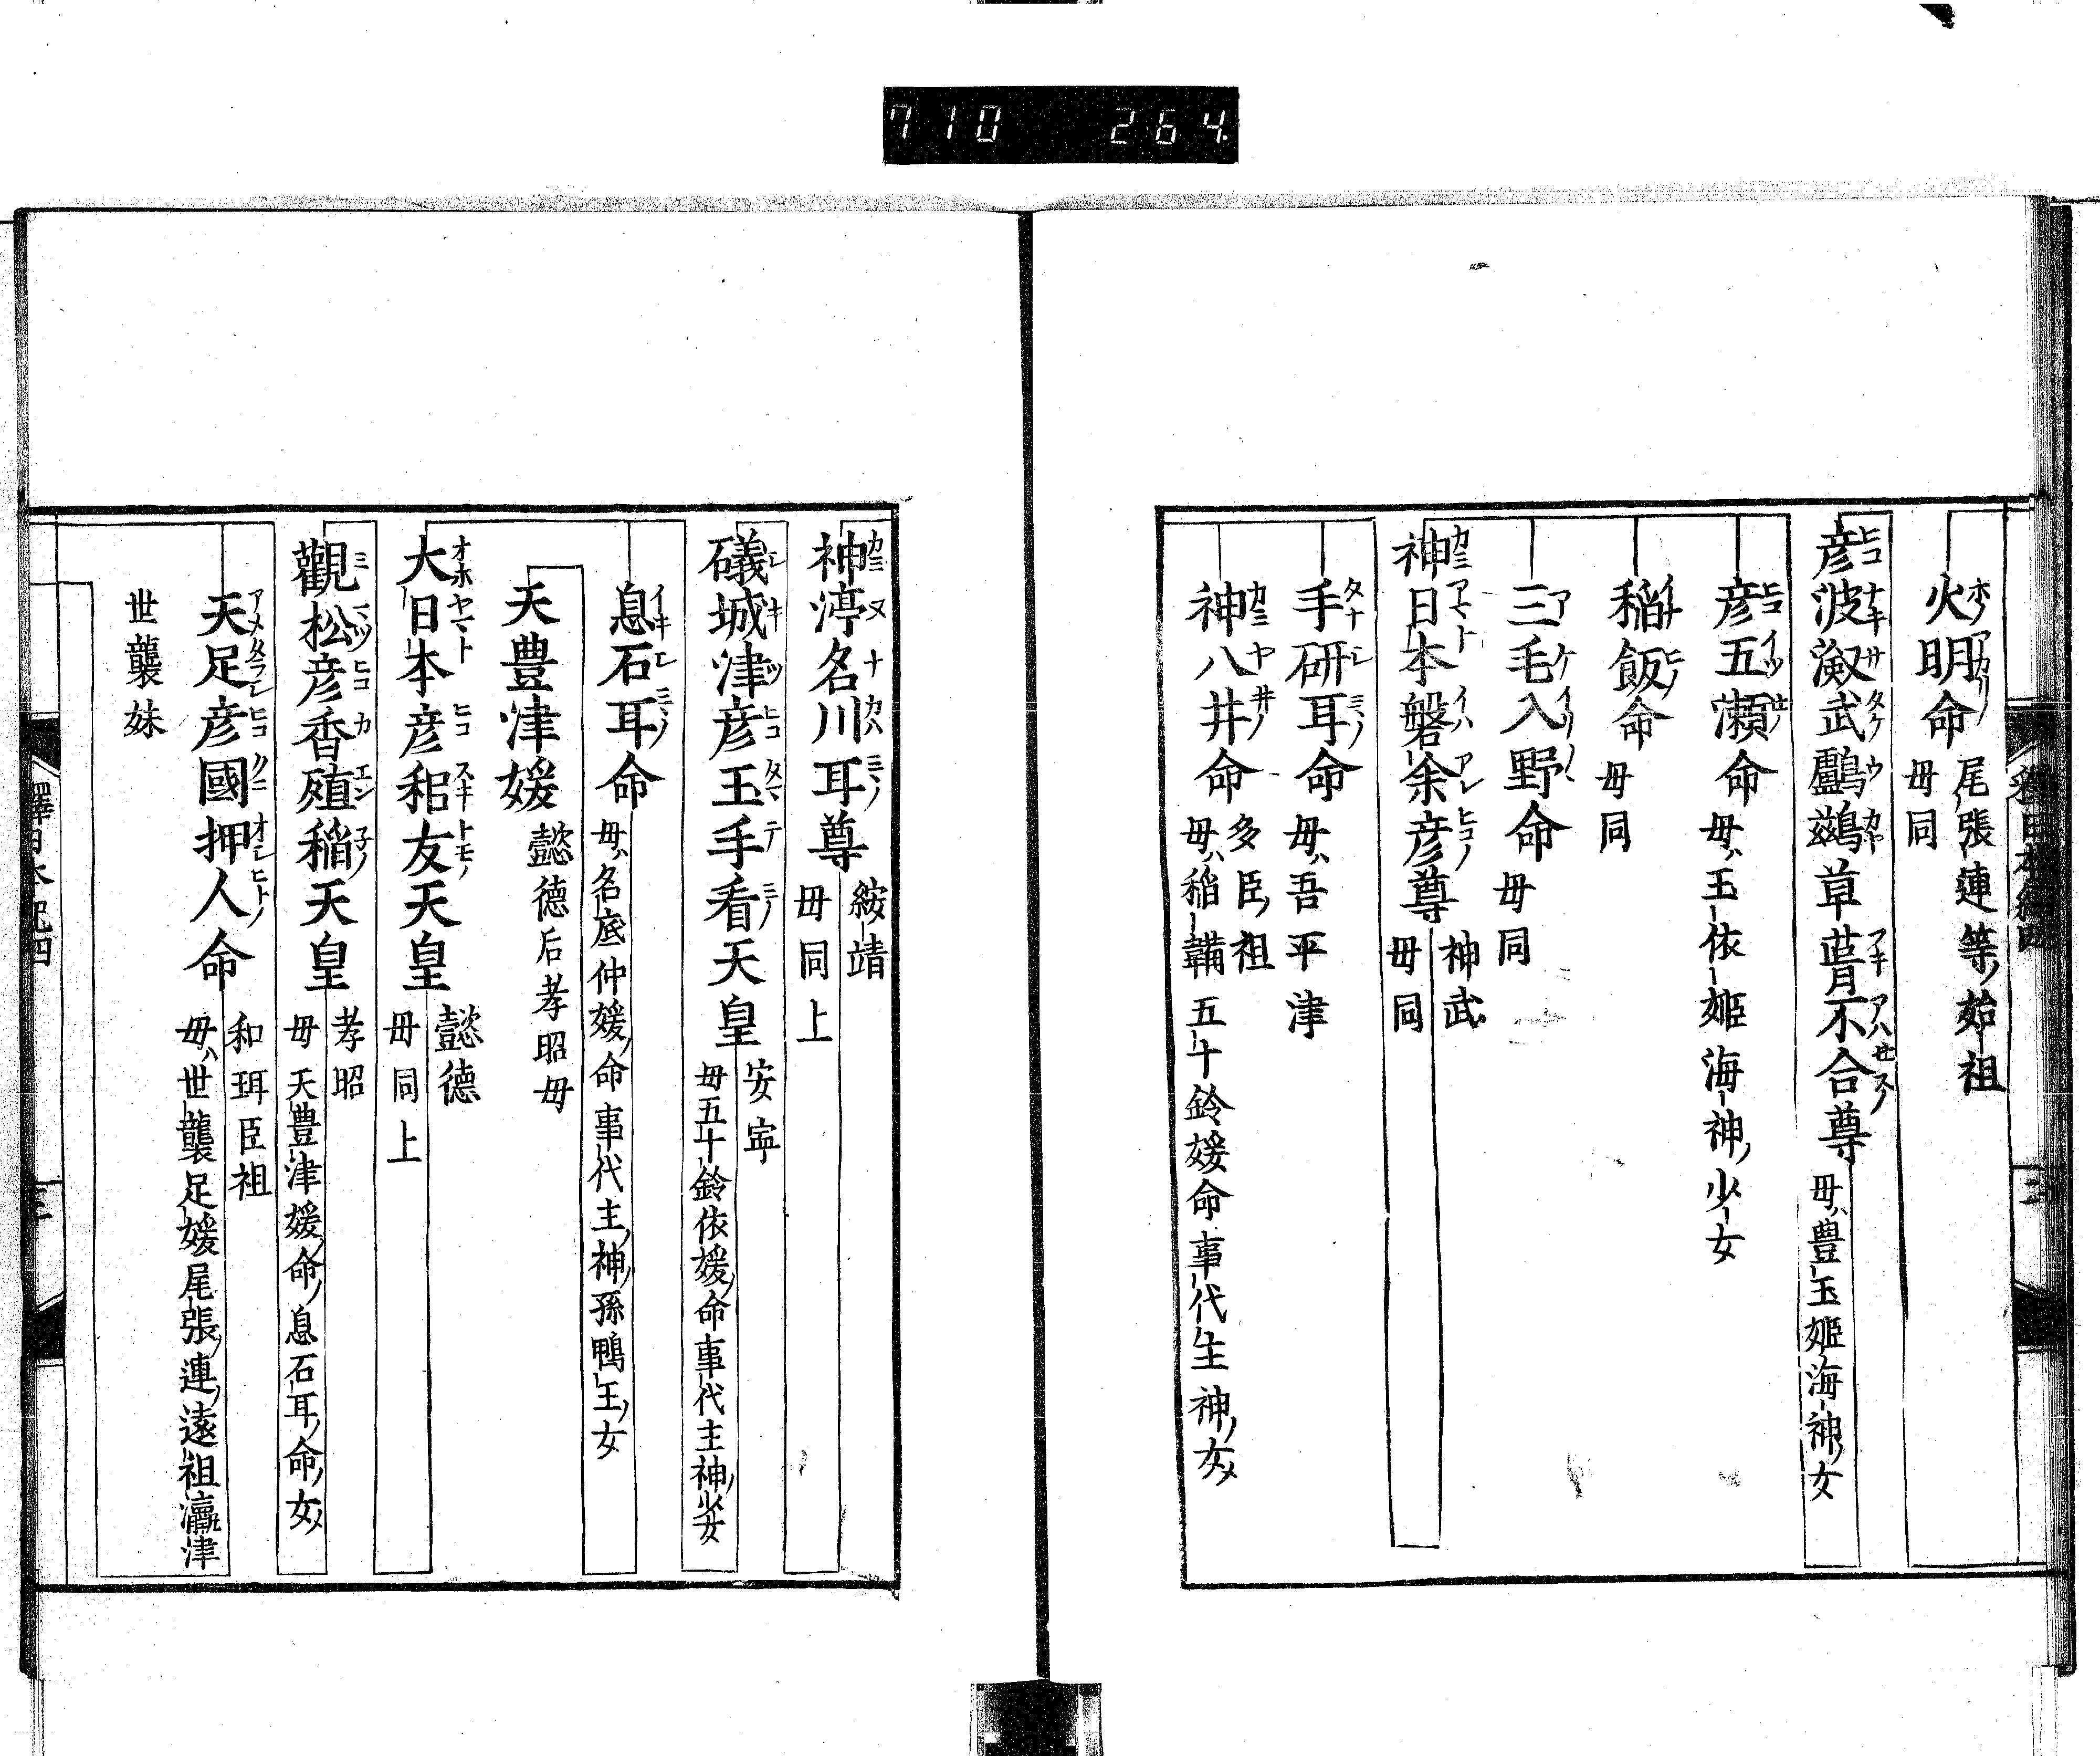 710 264
火明命 尾張連等ノ始祖
母同
彦波瀲武鸕鷀草葺不合尊 母ハ豊玉姬海神ノ女
彦五瀬命 母ハ玉依姬海神ノ少女
稲飯命 母同
三毛入野命 母同
神日本磐余彦尊 神武
母同
手研耳命 母ハ吾平津
神八井命 多臣祖
母ハ稲韛五十鈴媛命事代主神ノ女
神渟名川耳尊 綏靖
母同上
礒城津彦玉手看天皇 安寧
母五十鈴依媛ノ命事代主神ノ少女
息石耳命 母ハ名底仲媛ノ命事代主ノ神ノ孫鴨王ノ女
天豊津媛 懿德后孝昭母
大日本彦耜友天皇 懿德
母同上
觀松彦香殖稲天皇 孝昭
母天豊津媛ノ命ノ息石耳ノ命ノ女
天足彦國押人命 和珥臣祖
母ハ世襲足媛尾張ノ連ノ遠祖瀛津
世襲妹
釋日本紀四
三